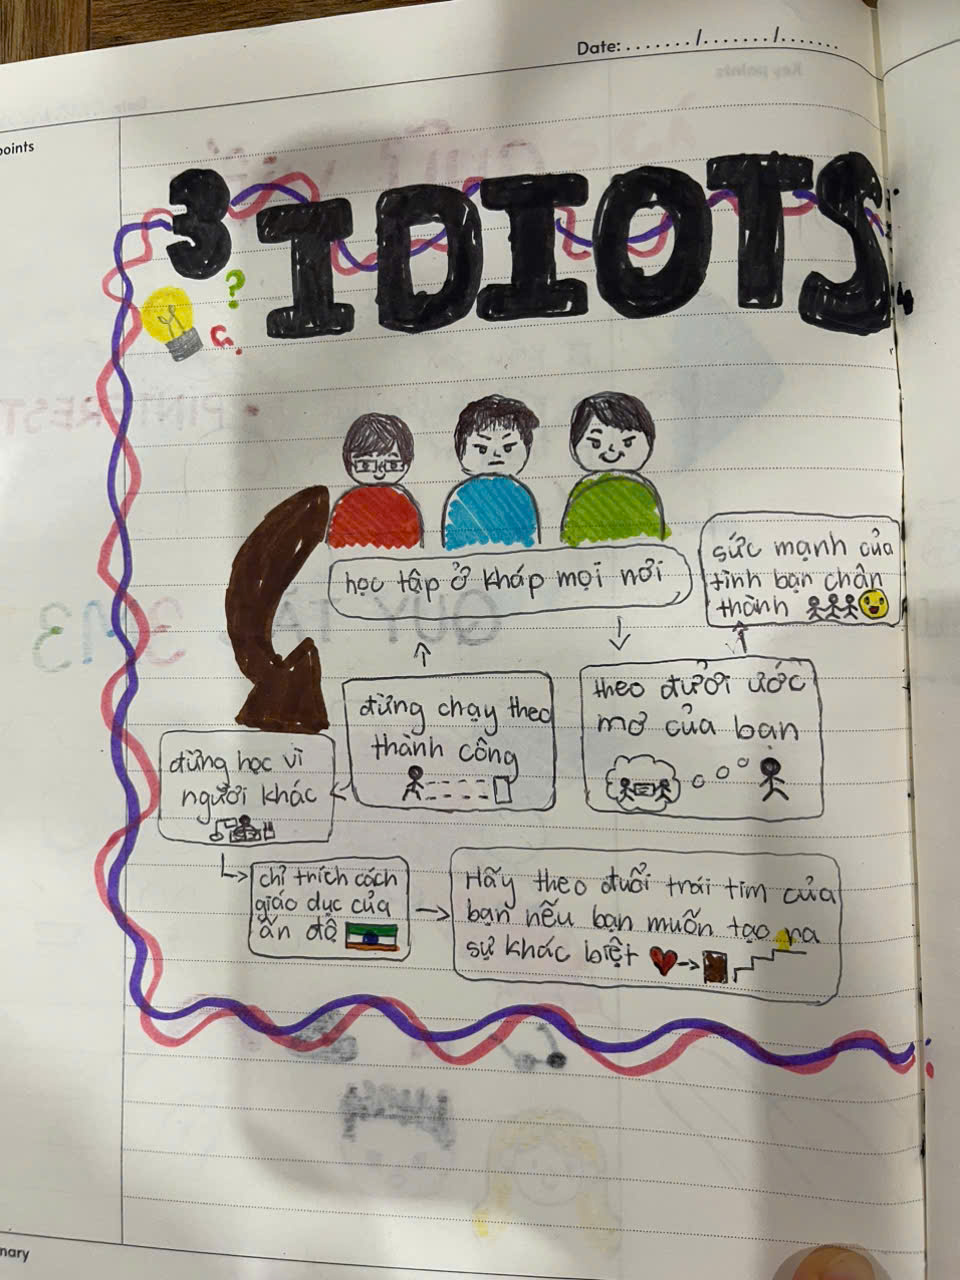 Date: ......./......./.......
points
3 IDIOTS
?
?
học tập ở kháp mọi nơi
sức mạnh của
tình bạn chân
thành
đừng chạy theo
thành công
theo đưởi ước
mơ của bạn
đừng học vì
người khác
chỉ trích cách
giáo dục của
ấn độ
Hãy theo đuổi trái tim của
bạn nếu bạn muốn tạo ra
sự khác biệt
nary